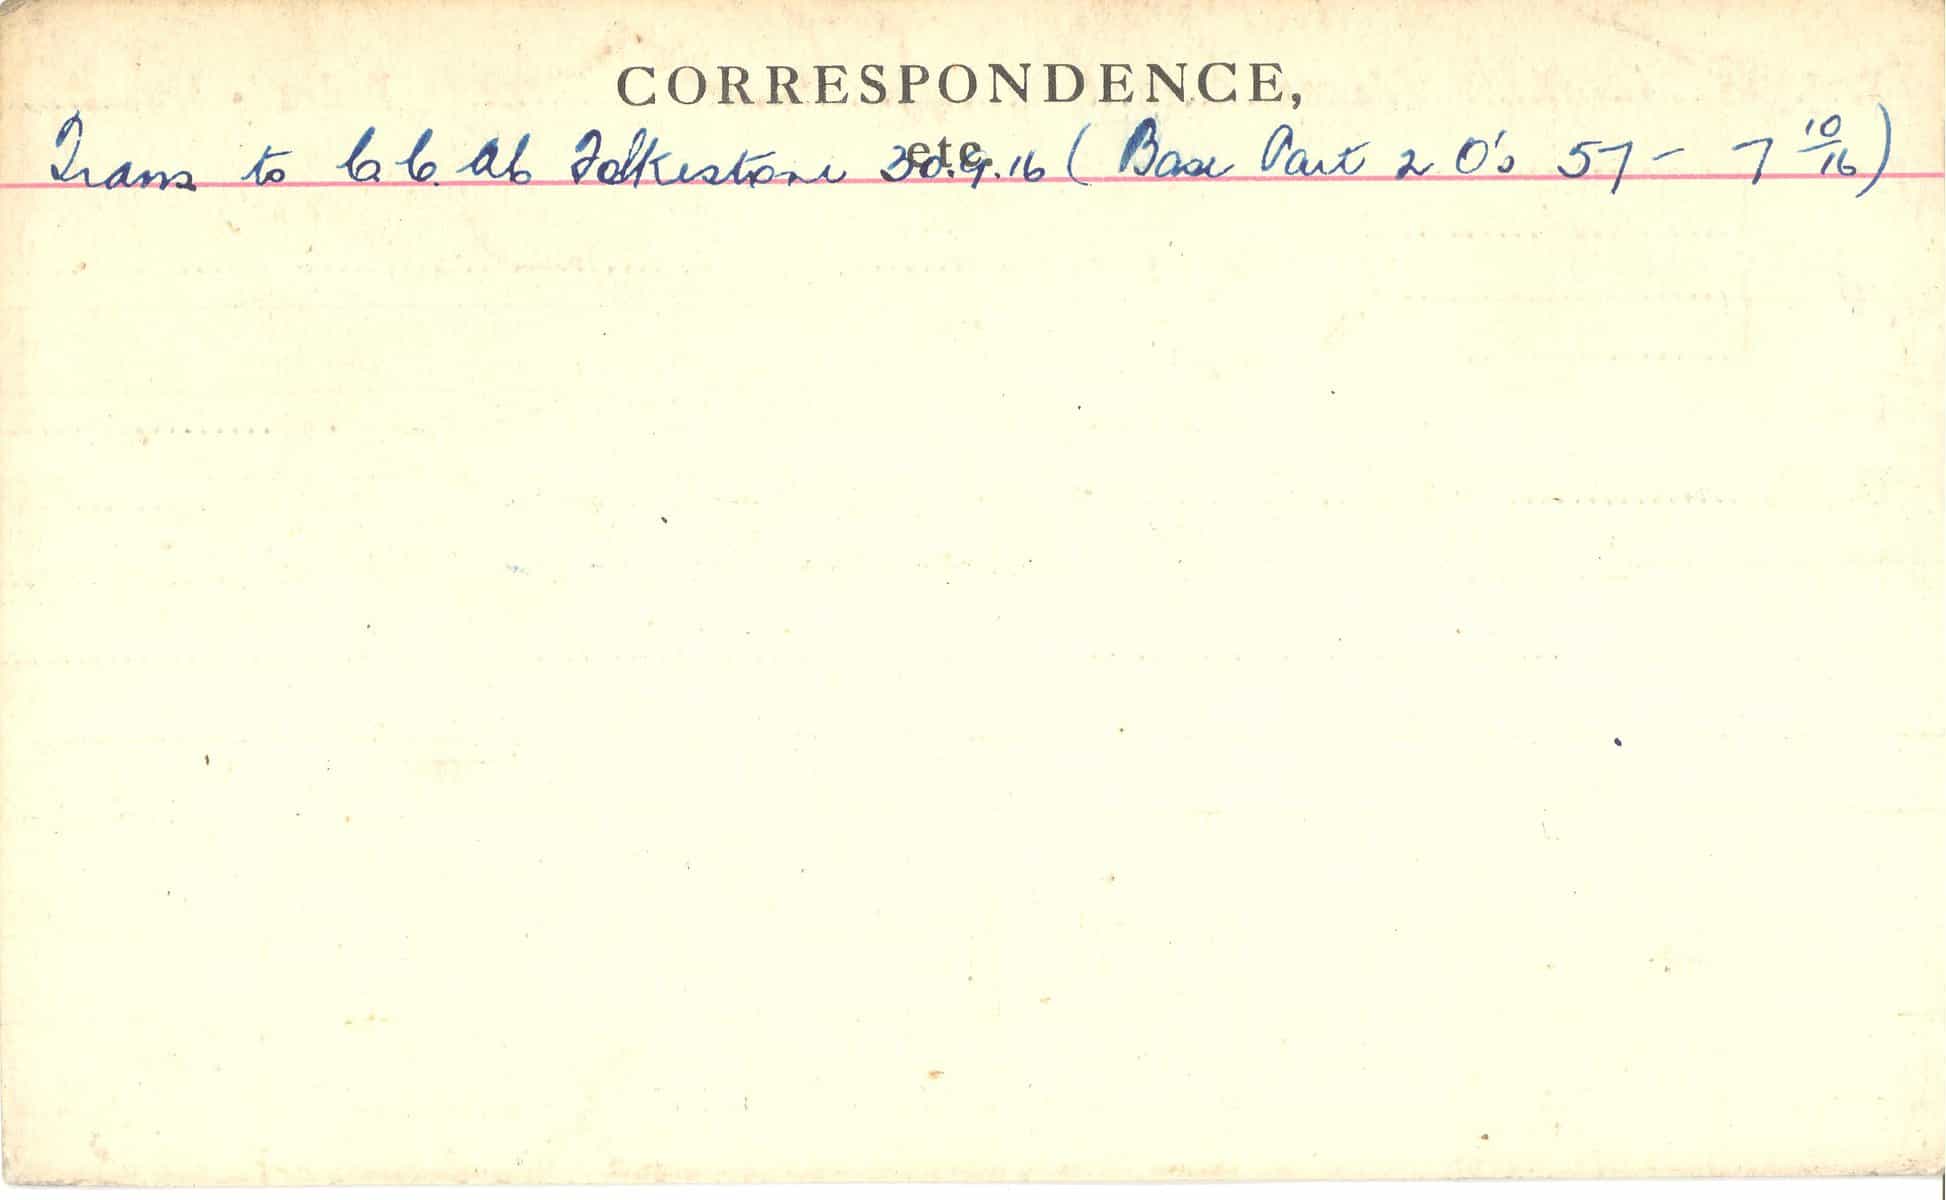 CORRESPONDENCE,
etc.
Trans to C.C. Ac Folkestone 30.9.16 (Base Part 2 O's 57 - 7 10/16)